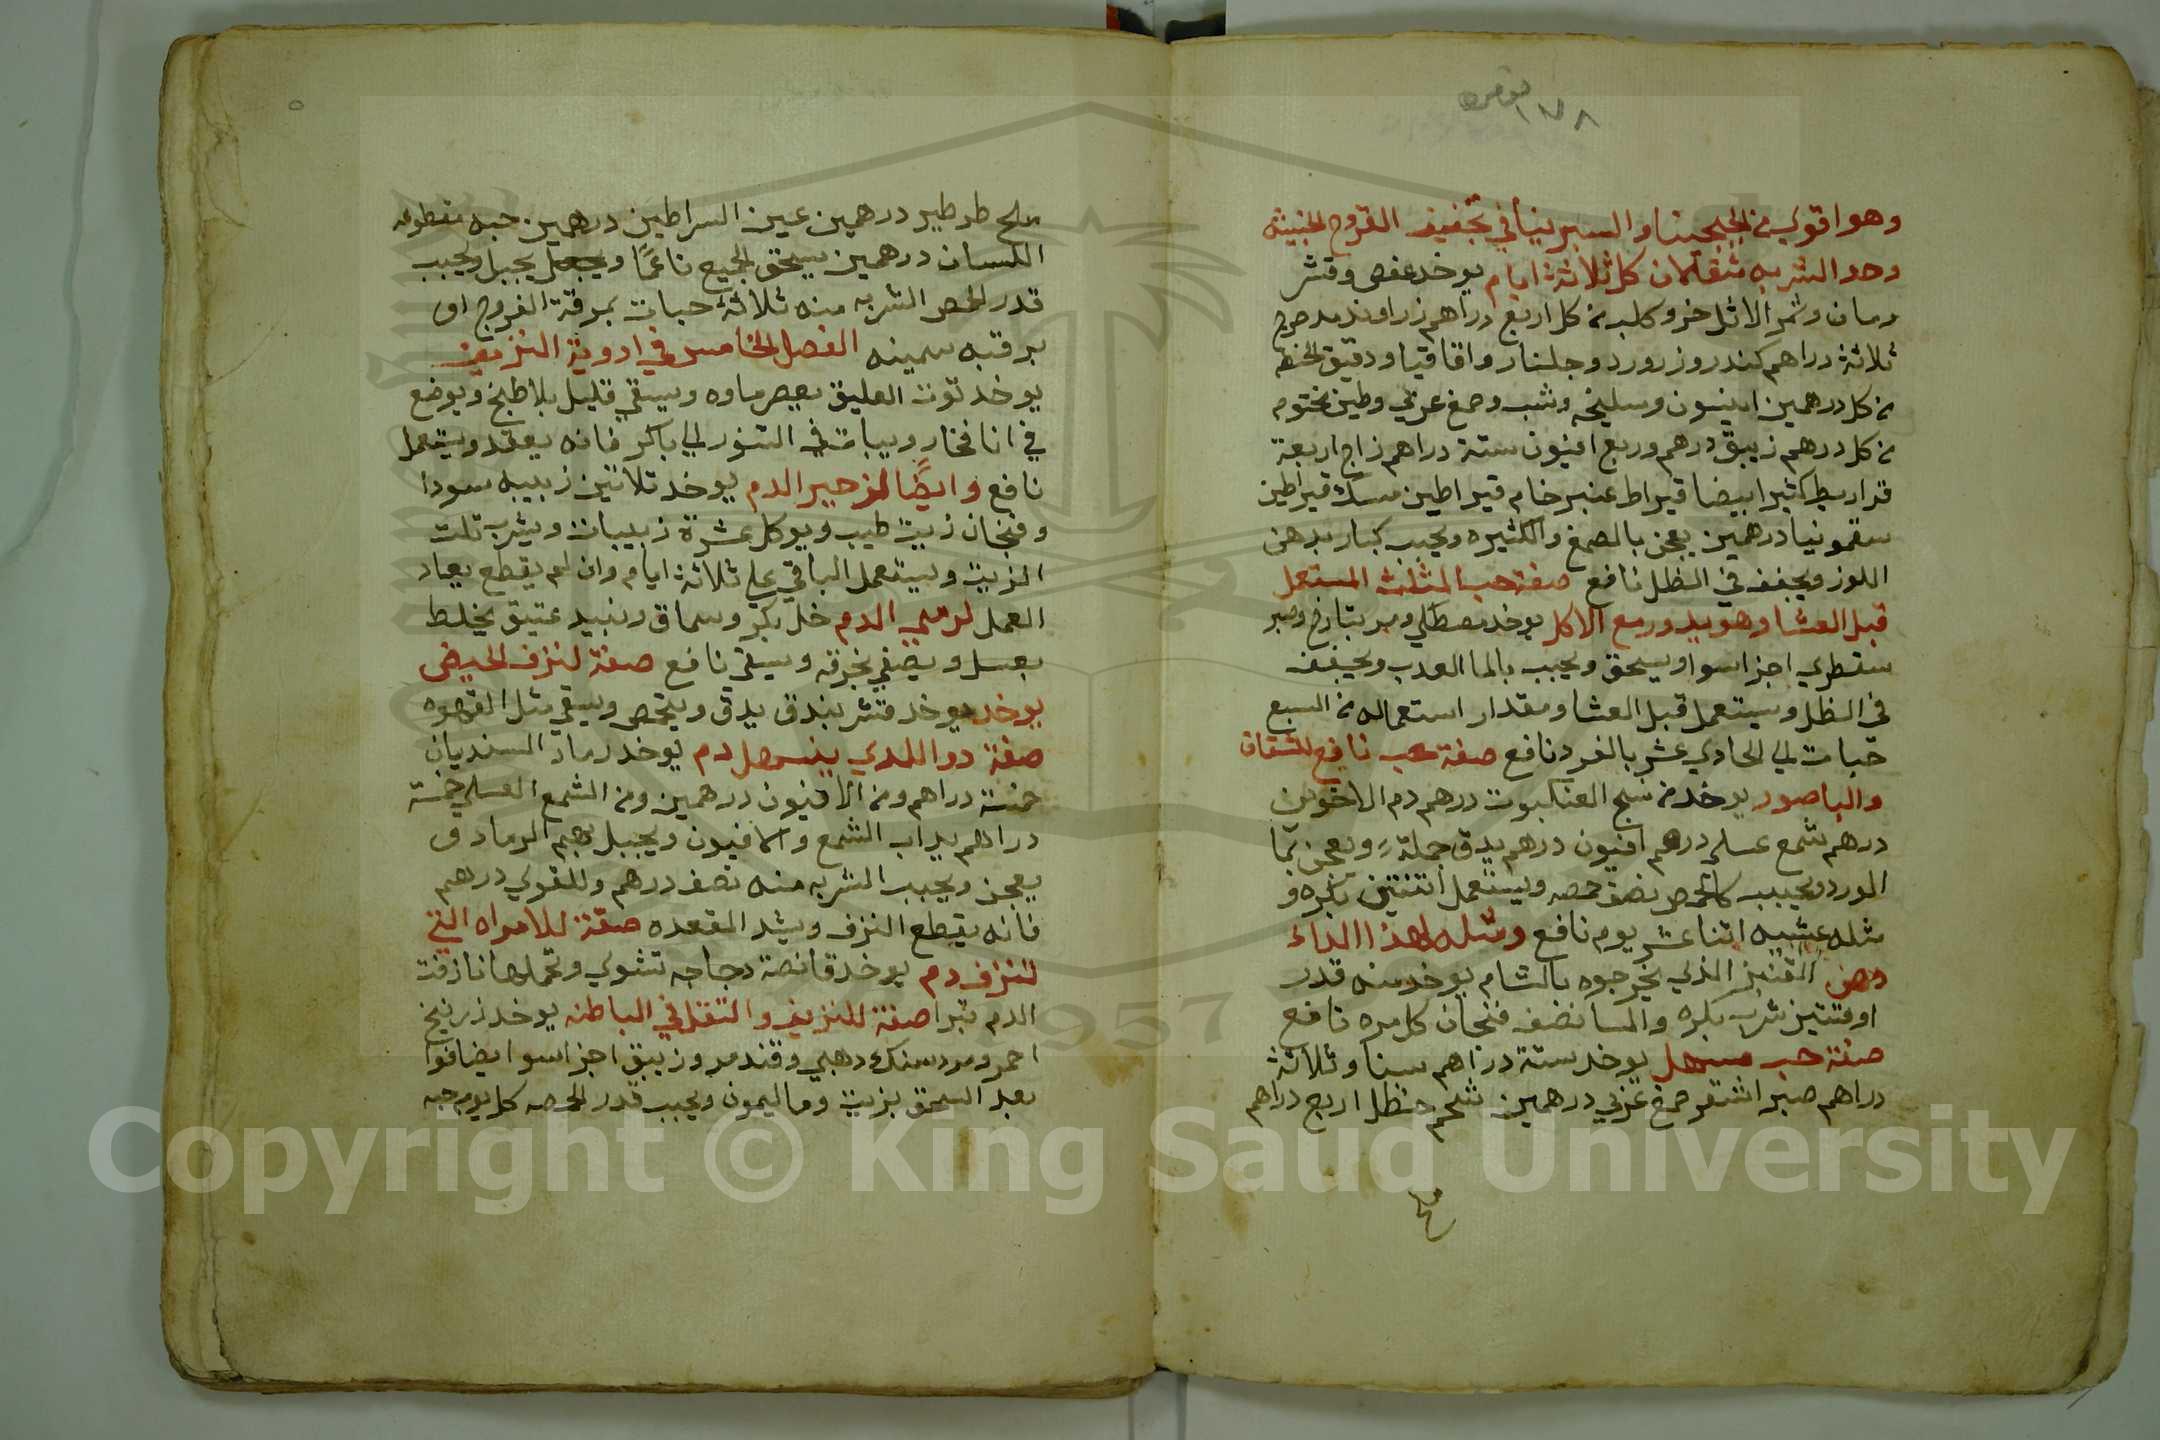 وهو اقوي من الجبجينا والسبرينا في تجفيف القروح الخبيثه
وحد الشربه مثقلان كل ثلاثة ايام يوخد عفص وقشر
رمان وثمر الاثل خروكلب من كل اربع دراهم زراوند مدحرج
ثلاثة دراهم كندر وزرورد وجلنار واقاقيا ودقيق الحنطه
من كل درهمين انيسون وسليخه وشب وصمغ عربي وطين مختوم
من كل درهم زيبق درهم وربع افيون ستة دراهم زاج اربعة
قراريط كثيرا بيضا قيراط عنبر خام قيراطين مسك قيراطين
سقمونيا درهمين يعجن بالصمغ والكثيره ويحبب كبار بدهن
اللوز ويجفف في الظل نافع صفة حب المثلث المستعمل
قبل العشا وهو يدور مع الاكل يوخد مصطكي وصبر
سقطري اجزا سوا ويسحق ويحبب بالما العدب ويجفف
في الظل ويستعمل قبل العشا ومقدار استعماله من السبع
حبات الي الحادي عشر بالفرد نافع صفة حب نافع للشقاق
والباصور يوخد من نسج العنكبوت درهم دم الاخوين
درهم شمع عسلي درهم افيون درهم يدق جملة ويعجن بما
الورد ويحبب كالحمص نصف حمصه ويستعمل اثنتين بكره و
مثله عشيه اثنا عشر يوم نافع ومثله لهذا الداء
دهن القنبز الذي يخرجوه بالشام يوخد منه قدر
اوقتين شرب بكره والمسا نصف فنجان كل مره نافع
صفة حب مسهل يوخد ستة دراهم سنا وثلاثة
دراهم صبر اشقر صمغ عربي درهمين شحم حنظل اربع دراهم
ملح طرطير درهمين عين السراطين درهمين حبه مقطوعه
اللسان درهمين يسحق الجميع ناعما ويجبل ويحبب
قدر الحمص الشربه منه ثلاثة حبات بمرقة الفروج او
برقبه سمينه الفصل الخامس في ادوية النزيف
يوخد توت العليق يعصر ماوه ويسقي قليل بلا طبخ ويوضع
في انا فخار ويبات في التنور الي باكر فانه يعقد ويستعمل
نافع وايضا لزحير الدم يوخد تلاتين زبيبه سودا
وفنجان زيت طيب ويوكل عشرة زبيبات ويشرب تلت
الزيت ويستعمل الباقي علي ثلاثة ايام وان لم يقطع يعاد
العمل لرمي الدم خل بكر وسماق ونبيد عتيق يخلط
بعسل ويصفي بخرقه ويسقي نافع صفة لنزف الحيض
يوخد يوخد قشر بندق يدق ويتحمص ويسقي مثل القهوه
صفة دوا للدي ينسهل دم يوخد رماد السنديان
خمسة دراهم ومن الافيون درهمين ومن الشمع العسلي خمسة
دراهم يداب الشمع والافيون ويجبل بهم الرماد و
يعجن ويحبب الشربه منه نصف درهم وللقوي درهم
فانه يقطع النزف ويشد المقعده صفة للامراه التي
تنزف دم يوخد قانصة دجاجه تشوي وتحملها نازفت
الدم تبرا صفة للنزيف والتقل في الباطنه يوخد زرنيخ
احمر ومردسنك دهبي وقند مر وزيبق اجزا سوا يضافوا
بعد السحق بزيت وما ليمون ويحبب قدر الحمصه كل يوم حبه
٥
Copyright © King Saud University
1957